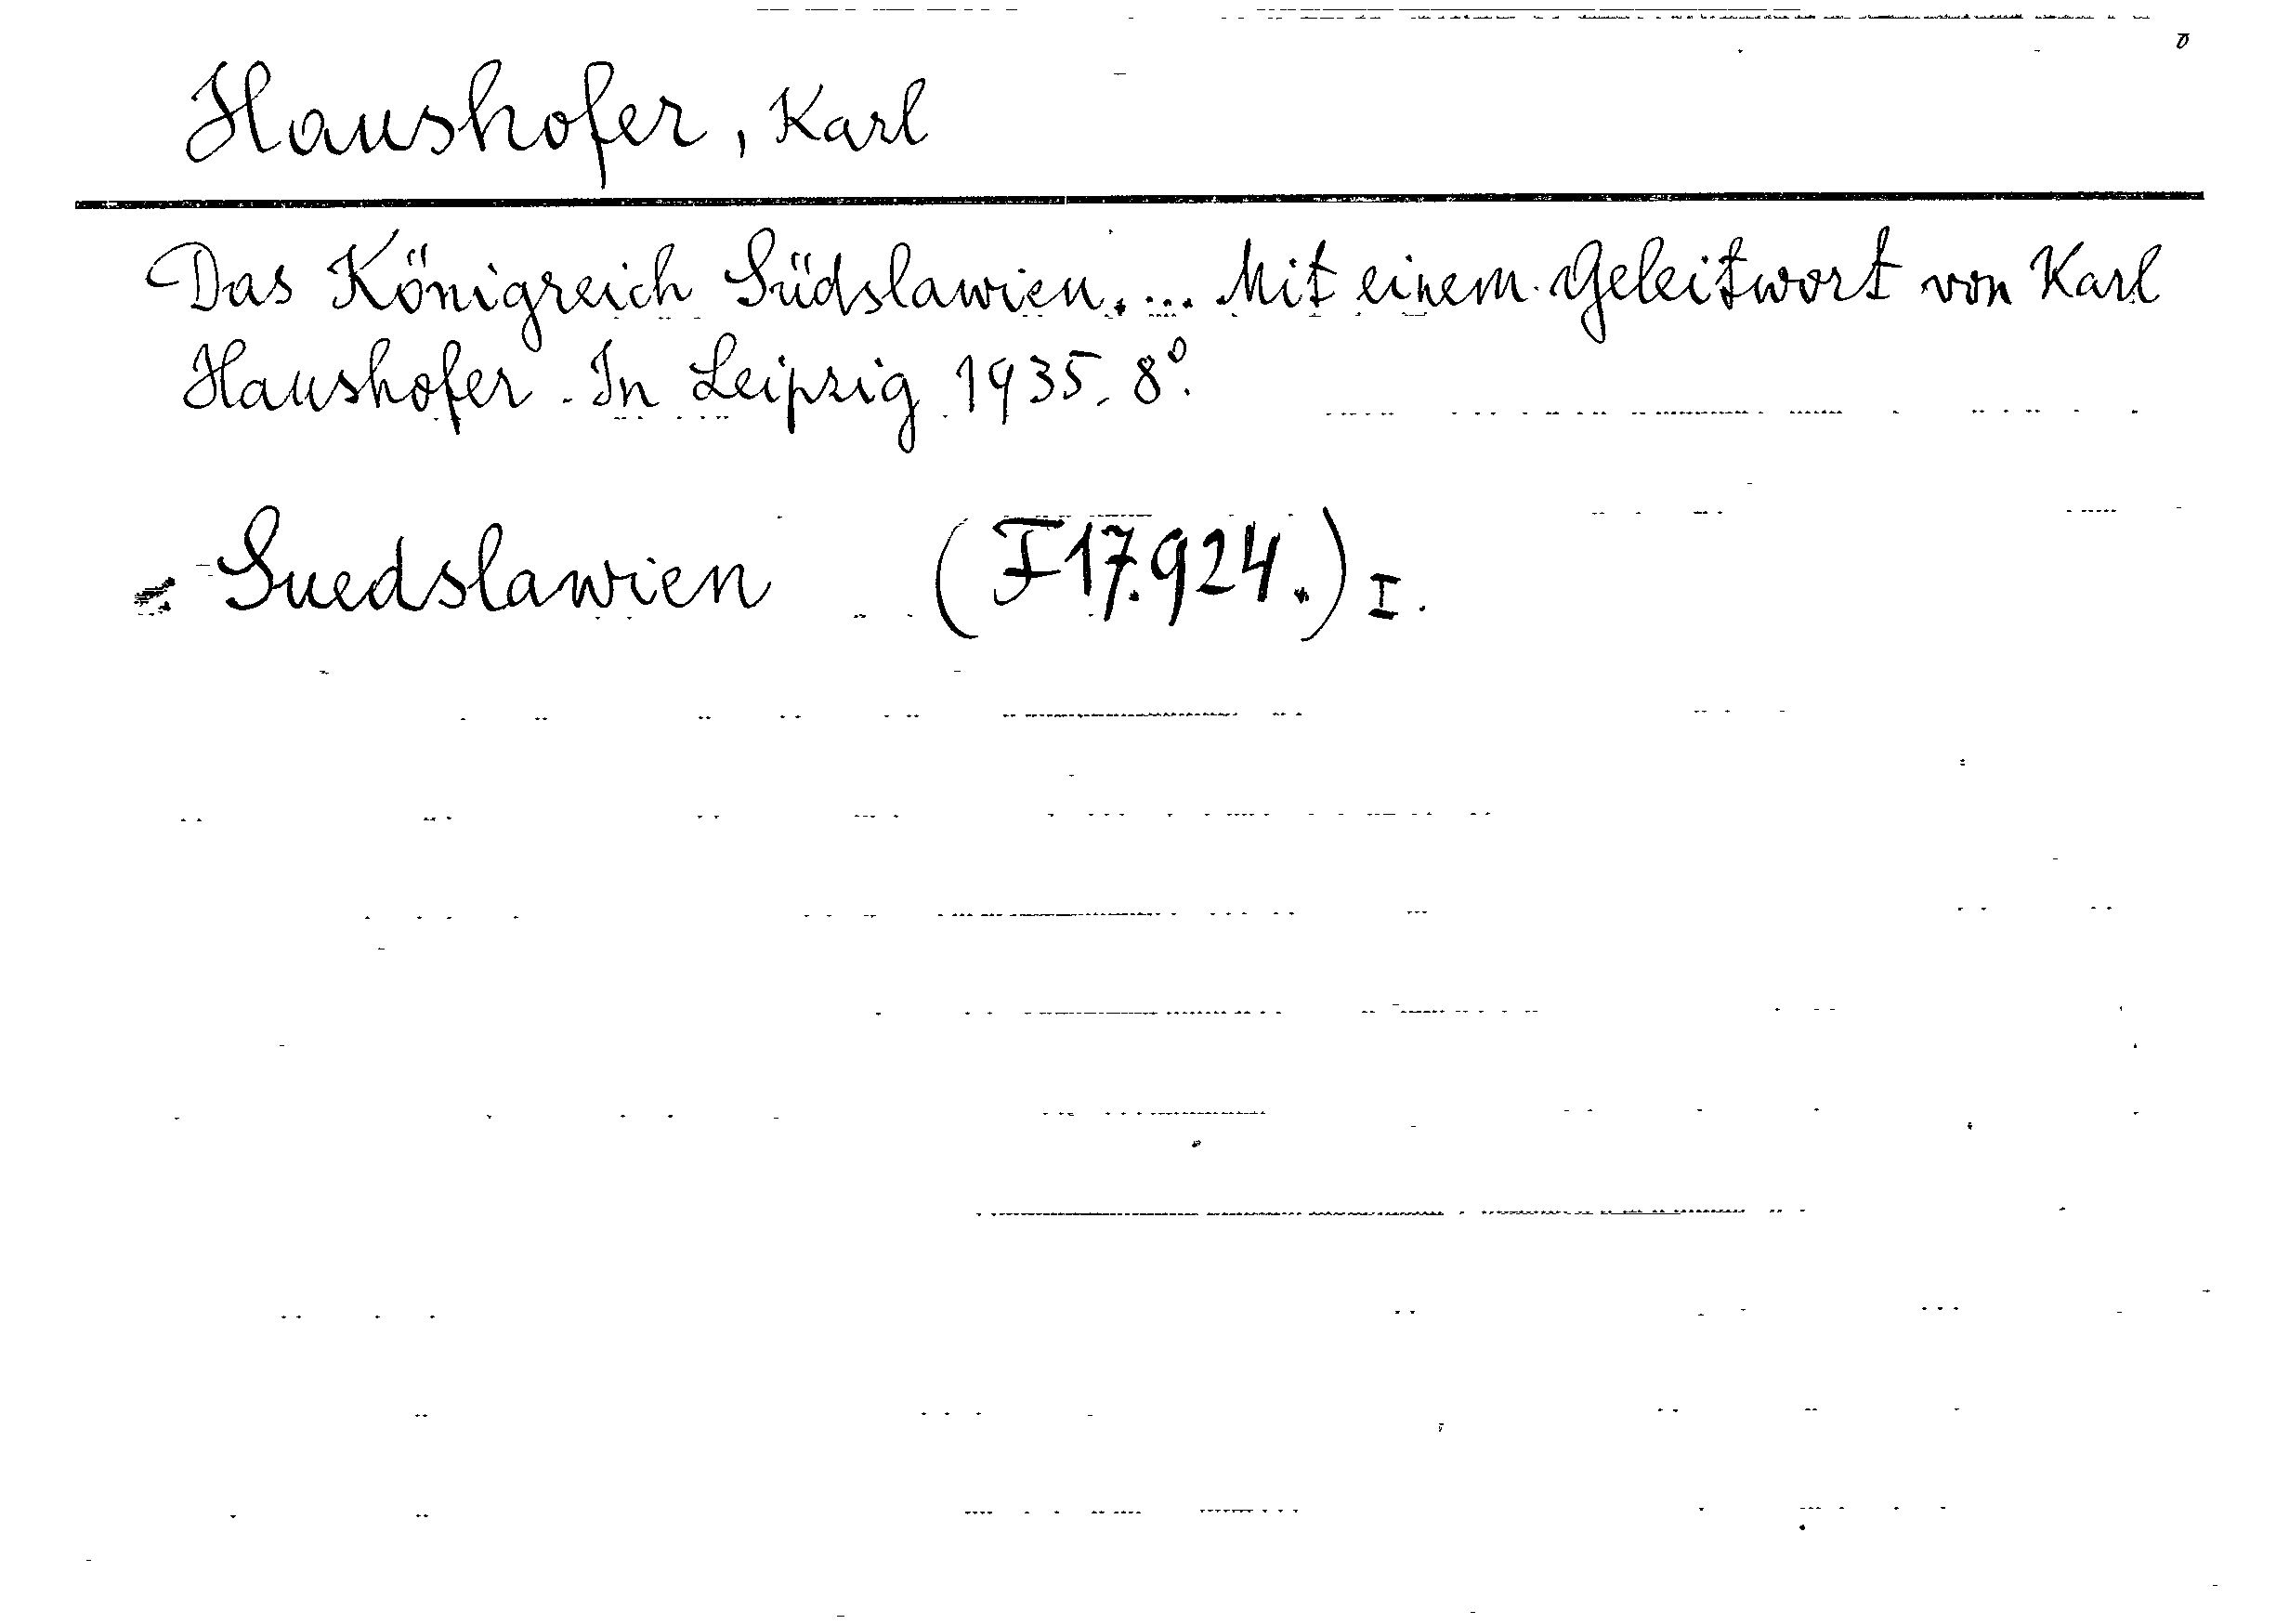 Haushofer, Karl
Das Königreich Südslawien. ... Mit einem Geleitwort von Karl
Haushofer. In Leipzig 1935. 8°.
Suedslawien (F 17.924.) I.